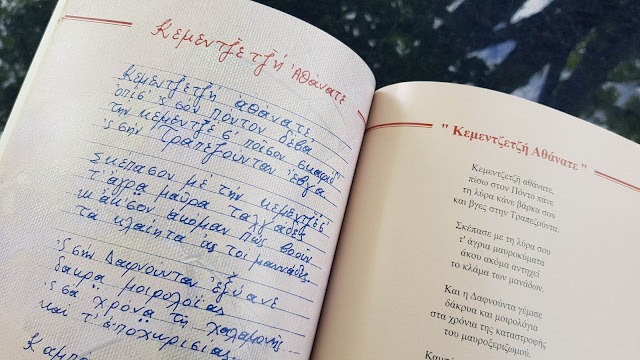 Κεμεντζ̆ετζ̆ή Ἀθάνατε
Κεμεντζ̆ετζ̆ή ἀθάνατε
ὀπίσ' 'ς σον Πόντον δέβα
την κεμεντζ̆ε σ' ποίσον
'ς σην Τραπεζούνταν έβγα
Σκέπασον με την κεμεντζ̆ές
τ' άγρα μαύρα ταλγάδες
κι ἄκ'σον ακόμαν πώς βοούν
τα κλαίητα ας τοι μαννάδες
'ς σην Δαφνούνταν
δάκρα μοιρολόϊας
'ς σα χρόνια τη χαλαμονής
και τ' ἀποχωρισίας
" Κεμεντζετζή Αθάνατε "
Κεμεντζετζή αθάνατε,
πίσω στον Πόντο πάνε
τη λύρα κάνε βάρκα σου
και βγες στην Τραπεζούντα.
Σκέπασε με τη λύρα σου
τ' άγρια μαυροκύματα
άκου ακόμα αντηχεί
το κλάμα των μανάδων.
Και η Δαφνούντα γέμισε
δάκρυα και μοιρολόγια
στα χρόνια της καταστροφής
του μαυροξεριζωμού.